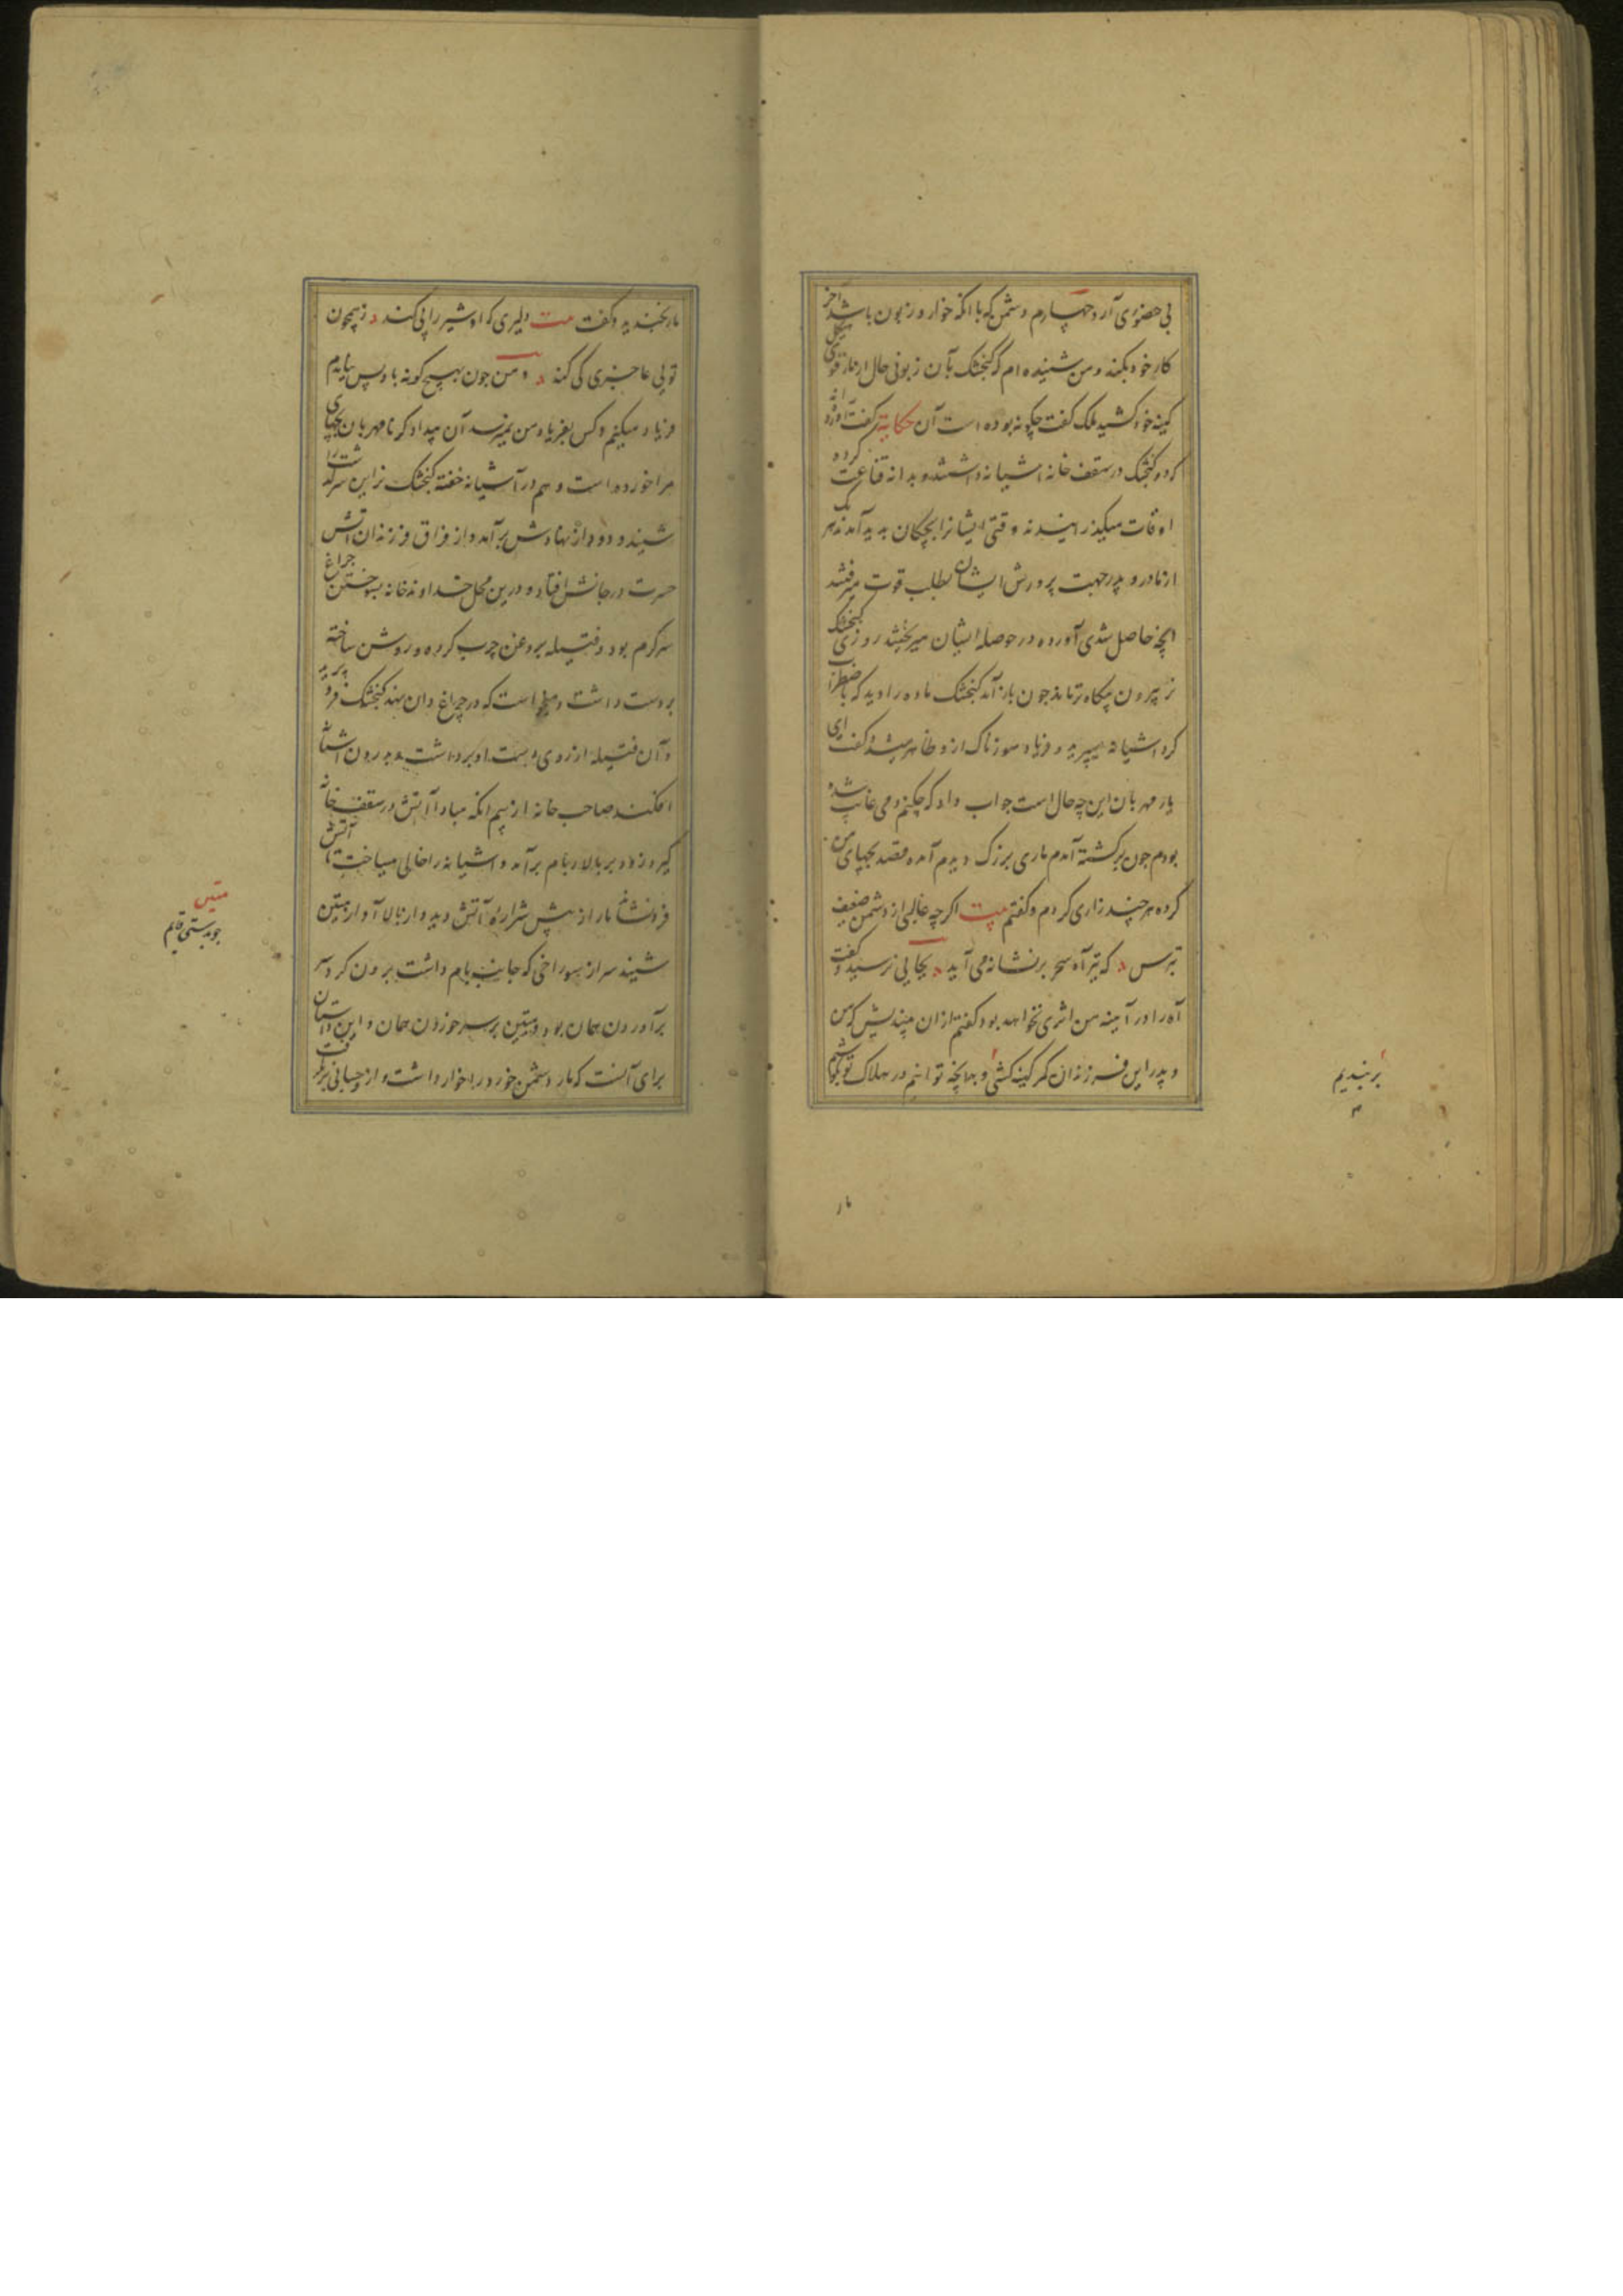 بی حضوری آرد چهارم دشمن که با انکه خوار و زبون باشد آخر
کار خود بکند و من شنیده ام که کنجشک بآن زبونی حال از مار قوی هیکل
کینه خود کشید ملک کفت چکونه بوده است آن حکایة کفت آورده اند
که دو کنجشک در سقف خانه اشیانه داشتند و بدانه قناعت کرده
اوقات میکذرانیدند وقتی ایشانرا بچکان پدید آمدند هر یک
از مادر و پدر جهت پرورش ایشان بطلب قوت میرفتند
انچه حاصل شدی آورده در حوصله ایشان میریختند روزی کنجشک
نر بیرون چکاه تر ماند جون باز آمد کنجشک ماده را دید که باضطراب
کرد اشیانه میپرید و فریاد سوزناک ازو ظاهر میشد کفت ای
یار مهربان این چه حال است جواب داد که چکنم دمی غائب شده
بودم جون برکشته آمدم ماری بزرک دیدم آمده قصد بچهای من
کرده هر چند زاری کردم و کفتم بیت اکرچه غالبی از دشمن ضعیف
بترس که تیر آه سحر بر نشانه می آید بجایی نرسید و کفت
آه را در آیینه من اثری نخواهد بود کفتم ازان بیندیش که من
و پدر این فرزندان کمر کینه کشی و بهانچه توانیم در هلاک تو بکوشیم
بربندیم
مار
مار بخندید و کفت بیت دلیری که او شیر را پی کند ز همچون
تویی عاجزی کی کند و من جون بهیچ کونه با او بس نیایدم
فریاد میکنم و کس بفریاد من نمیرسد آن بیدادکر نامهربان بچهای
مرا خورده است و هم در آشیانه خفته کنجشک نر این سرکذشت را
شنید و دود از نهادش برآمد و از فراق فرزندان آتش
حسرت در جانش افتاد و درین محل خداوند خانه بسوختن جراغ
سرکرم بود و فتیله بروغن چرب کرده و روشن ساخته
بر دست داشت و میخواست که در چراغ دان نهد کنجشک فرو پرید
و آن فتیله از روی دست او برداشت و بدرون اشیانه
افکند صاحب خانه از بیم انکه مبادا آتش در سقف خانه
کیرد زود بر بالا بام برآمد و اشیانه را خالی میساخت تا آتش
فرونشاند مار از پیش شراره آتش دید و از بالا آواز متین
شنید سر از سوراخی که جانب بام داشت برون کرد سر
برآوردن همان بود و متین بر سر خوردن همان و این داستان
برای آنست که مار دشمن خود را خوار داشت و از حسابی برنکرفت
متین
جوبدستی قایم